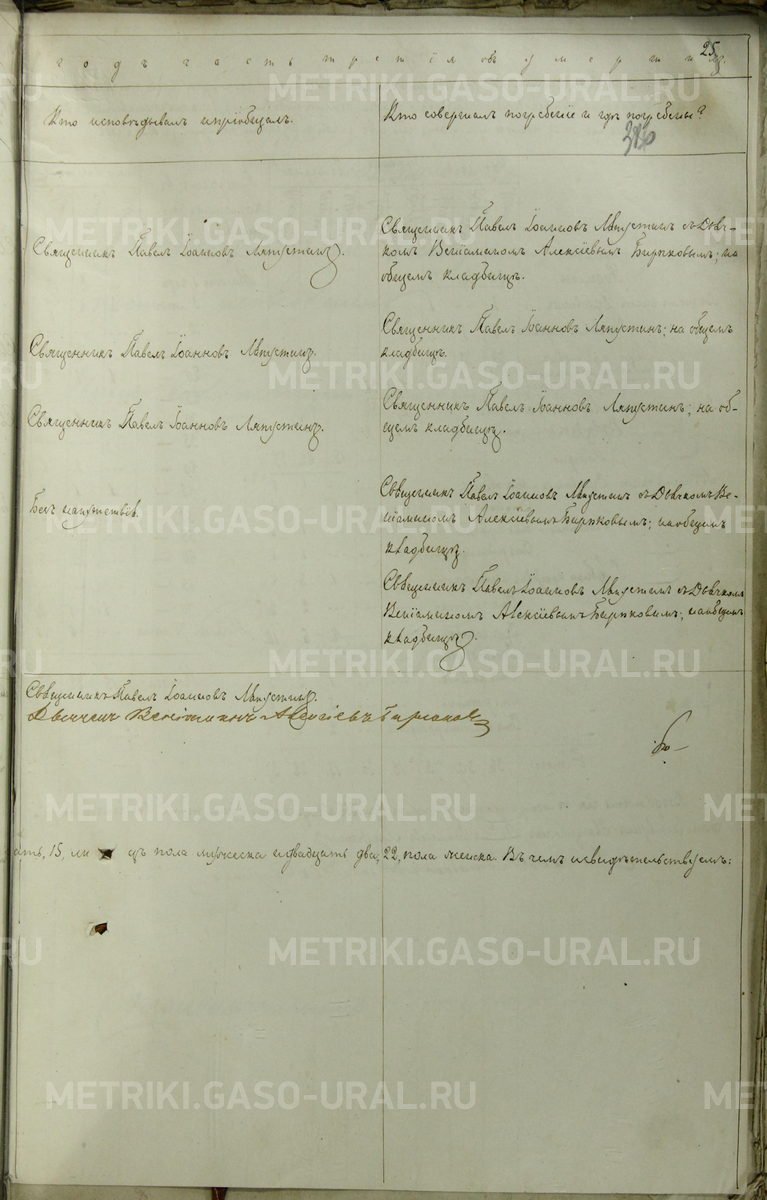 25
годъ часть третія объ умершихъ.
Кто исповѣдывалъ и пріобщалъ.
Кто совершалъ погребеніе и гдѣ погребены?
Священникъ Павелъ Іоанновъ Ляпустинъ.
Священникъ Павелъ Іоанновъ Ляпустинъ съ Дьяч-
комъ Веніаминомъ Алексіевымъ Бирюковымъ; на
общемъ кладбищѣ.
Священникъ Павелъ Іоанновъ Ляпустинъ.
Священникъ Павелъ Іоанновъ Ляпустинъ; на общемъ
кладбищѣ.
Священникъ Павелъ Іоанновъ Ляпустинъ.
Священникъ Павелъ Іоанновъ Ляпустинъ; на об-
щемъ кладбищѣ.
Безъ напутствія.
Священникъ Павелъ Іоанновъ Ляпустинъ съ Дьячкомъ Ве-
ніаминомъ Алексіевымъ Бирюковымъ; на общемъ
кладбищѣ.
Священникъ Павелъ Іоанновъ Ляпустинъ съ Дьячкомъ
Веніаминомъ Алексіевымъ Бирюковымъ; на общемъ
кладбищѣ.
Священникъ Павелъ Іоанновъ Ляпустинъ.
Дьячекъ Веніаминъ Алексіевъ Бирюковъ
ать, 15, ли цъ пола мужеска и двадцать два, 22, пола женска. Въ чемъ и свидѣтельствуемъ:
METRIKI.GASO-URAL.RU